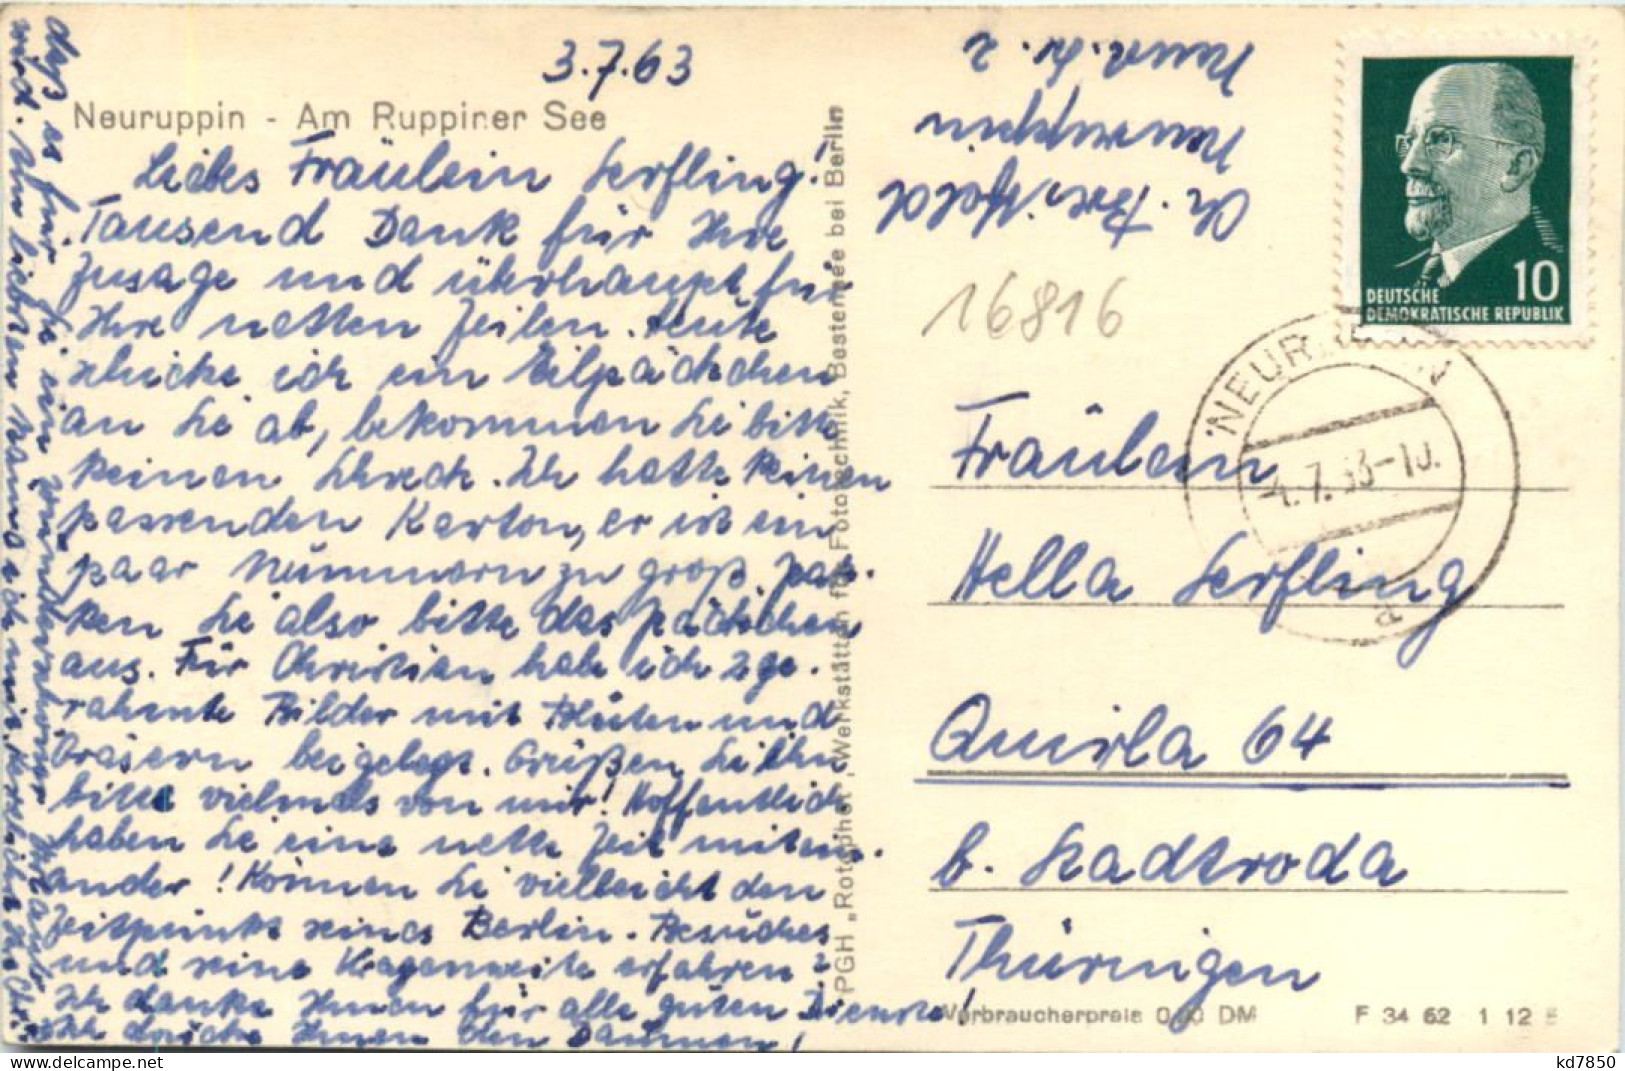 3.7.63
Neuruppin - Am Ruppiner See
Liebes Fräulein Serfling!
Tausend Dank für Ihre
Zusage und überhaupt für
Ihre netten Zeilen. Heute
schicke ich ein Eilpäckchen
an Sie ab, bekommen Sie bitte
keinen Schreck. Ich hatte keinen
passenden Karton, er ist ein
paar Nummern zu groß. Pak-
ken Sie also bitte das Päckchen
aus. Für Christian habe ich 2 ge-
rahmte Bilder mit Blüten und
Gräsern beigelegt. Grüßen Sie ihn
bitte vielmals von mir! Hoffentlich
haben Sie eine nette Zeit mitein-
ander! Können Sie vielleicht den
Zeitpunkt seines Berlin-Besuches
und seine Kragenweite erfahren?
Ich danke Ihnen für alle guten Dienste!
Ich drücke Ihnen den Daumen,
daß es für Sie ein wunderschöner Urlaub
wird. Um lieben
PGH „Rotophot", Werkstätten für Fototechnik, Bestensee bei Berlin
Neuruppin
16816
10
DEUTSCHE
DEMOKRATISCHE REPUBLIK
NEURUPPIN
4.7.63-10.
a
Fräulein
Hella Serfling
Quirla 64
b. Stadtroda
Thüringen
Verbraucherpreis DM
F 34 62 1 12
kd7850